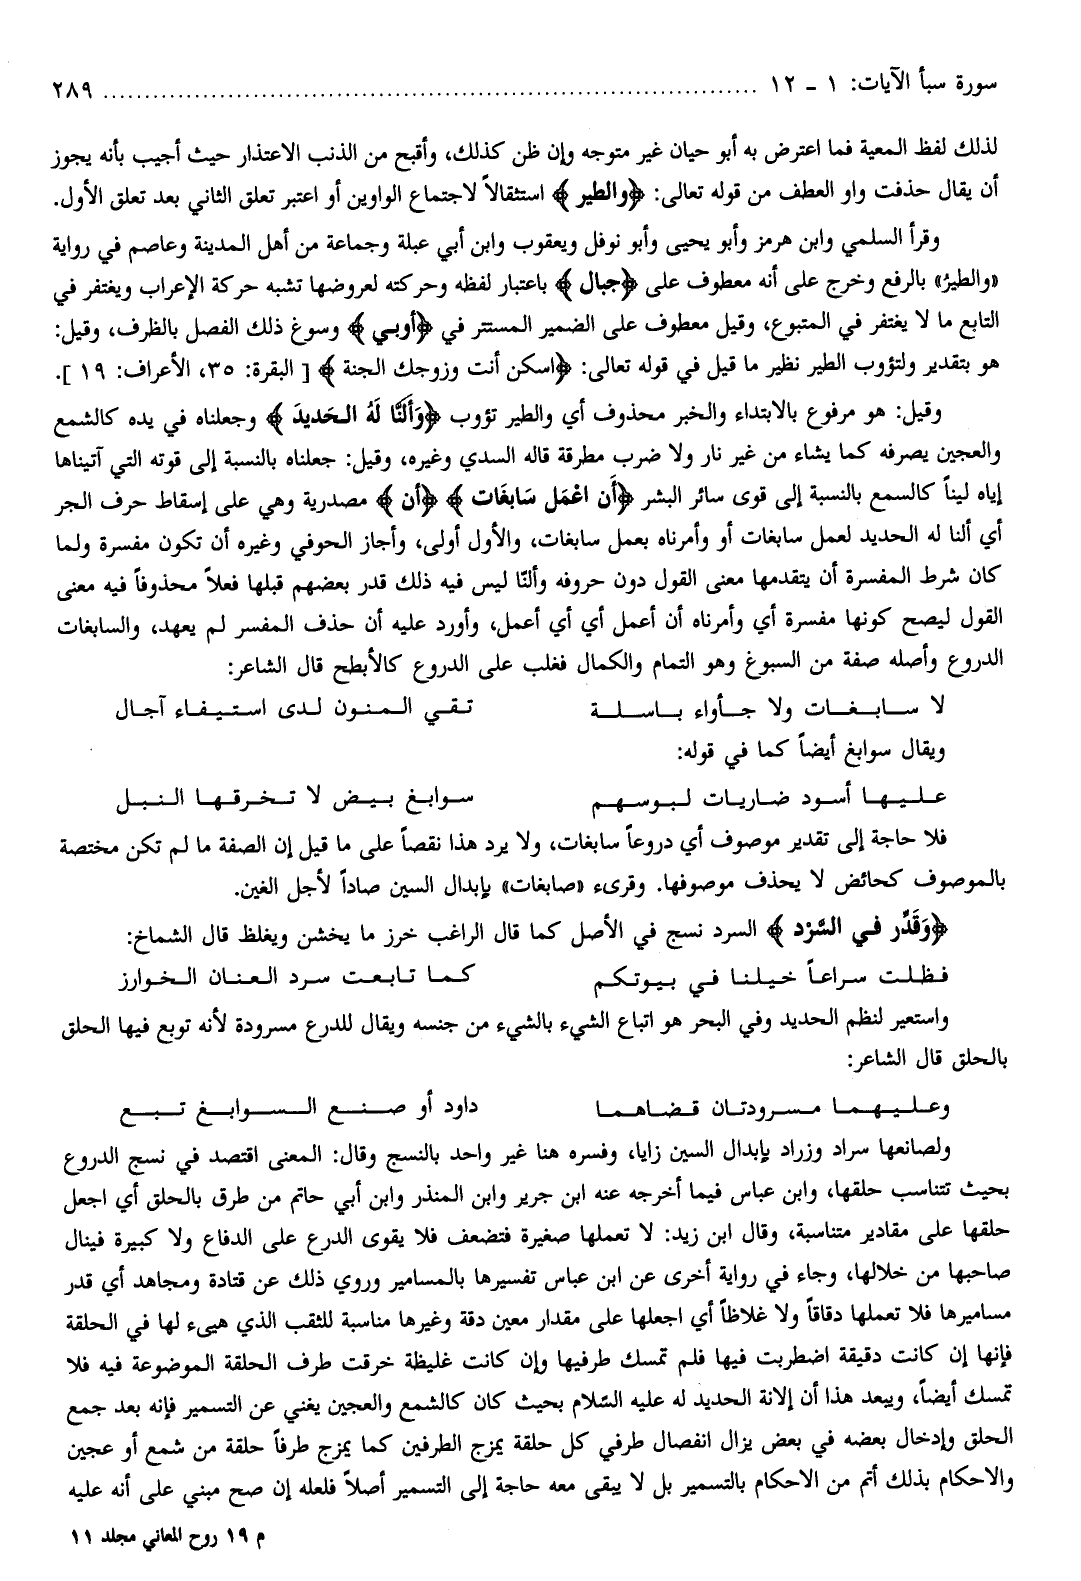 سورة سبأ الآيات: ١ ـ ١٢ ................................................................................ ٢٨٩
لذلك لفظ المعية فما اعترض به أبو حيان غير متوجه وإن ظن كذلك، وأقبح من الذنب الاعتذار حيث أجيب بأنه يجوز
أن يقال حذفت واو العطف من قوله تعالى: ﴿والطير﴾ استثقالاً لاجتماع الواوين أو اعتبر تعلق الثاني بعد تعلق الأول.
وقرأ السلمي وابن هرمز وأبو يحيى وأبو نوفل ويعقوب وابن أبي عبلة وجماعة من أهل المدينة وعاصم في رواية
«والطيرُ» بالرفع وخرج على أنه معطوف على ﴿جبال﴾ باعتبار لفظه وحركته لعروضها تشبه حركة الإعراب ويغتفر في
التابع ما لا يغتفر في المتبوع، وقيل معطوف على الضمير المستتر في ﴿أوبي﴾ وسوغ ذلك الفصل بالظرف، وقيل:
هو بتقدير ولتؤوب الطير نظير ما قيل في قوله تعالى: ﴿اسكن أنت وزوجك الجنة﴾ [ البقرة: ٣٥، الأعراف: ١٩ ].
وقيل: هو مرفوع بالابتداء والخبر محذوف أي والطير تؤوب ﴿وَأَلَنَّا لَهُ الحَديدَ﴾ وجعلناه في يده كالشمع
والعجين يصرفه كما يشاء من غير نار ولا ضرب مطرقة قاله السدي وغيره، وقيل: جعلناه بالنسبة إلى قوته التي آتيناها
إياه ليناً كالسمع بالنسبة إلى قوى سائر البشر ﴿أَن اعْمَل سَابغَات﴾ ﴿أن﴾ مصدرية وهي على إسقاط حرف الجر
أي ألنا له الحديد لعمل سابغات أو وأمرناه بعمل سابغات، والأول أولى، وأجاز الحوفي وغيره أن تكون مفسرة ولما
كان شرط المفسرة أن يتقدمها معنى القول دون حروفه وألنّا ليس فيه ذلك قدر بعضهم قبلها فعلاً محذوفاً فيه معنى
القول ليصح كونها مفسرة أي وأمرناه أن أعمل أي أي أعمل، وأورد عليه أن حذف المفسر لم يعهد، والسابغات
الدروع وأصله صفة من السبوغ وهو التمام والكمال فغلب على الدروع كالأبطح قال الشاعر:
لا سابغات ولا جأواء باسلة تقي المنون لدى استيفاء آجال
ويقال سوابغ أيضاً كما في قوله:
عليها أسود ضاريات لبوسهم سوابغ بيض لا تخرقها النبل
فلا حاجة إلى تقدير موصوف أي دروعاً سابغات، ولا يرد هذا نقصاً على ما قيل إن الصفة ما لم تكن مختصة
بالموصوف كحائض لا يحذف موصوفها. وقرىء «صابغات» بإبدال السين صاداً لأجل الغين.
﴿وَقَدِّر في السَّرْد﴾ السرد نسج في الأصل كما قال الراغب خرز ما يخشن ويغلظ قال الشماخ:
فظلت سراعاً خيلنا في بيوتكم كما تابعت سرد العنان الخوارز
واستعير لنظم الحديد وفي البحر هو اتباع الشيء بالشيء من جنسه ويقال للدرع مسرودة لأنه توبع فيها الحلق
بالحلق قال الشاعر:
وعليهما مسرودتان قضاهما داود أو صنع السوابغ تبع
ولصانعها سراد وزراد بإبدال السين زايا، وفسره هنا غير واحد بالنسج وقال: المعنى اقتصد في نسج الدروع
بحيث تتناسب حلقها، وابن عباس فيما أخرجه عنه ابن جرير وابن المنذر وابن أبي حاتم من طرق بالحلق أي اجعل
حلقها على مقادير متناسبة، وقال ابن زيد: لا تعملها صغيرة فتضعف فلا يقوى الدرع على الدفاع ولا كبيرة فينال
صاحبها من خلالها، وجاء في رواية أخرى عن ابن عباس تفسيرها بالمسامير وروي ذلك عن قتادة ومجاهد أي قدر
مساميرها فلا تعملها دقاقاً ولا غلاظاً أي اجعلها على مقدار معين دقة وغيرها مناسبة للثقب الذي هيىء لها في الحلقة
فإنها إن كانت دقيقة اضطربت فيها فلم تمسك طرفيها وإن كانت غليظة خرقت طرف الحلقة الموضوعة فيه فلا
تمسك أيضاً، ويبعد هذا أن إلانة الحديد له عليه السّلام بحيث كان كالشمع والعجين يغني عن التسمير فإنه بعد جمع
الحلق وإدخال بعضه في بعض يزال انفصال طرفي كل حلقة يمزج الطرفين كما يمزج طرفاً حلقة من شمع أو عجين
والاحكام بذلك أتم من الاحكام بالتسمير بل لا يبقى معه حاجة إلى التسمير أصلاً فلعله إن صح مبني على أنه عليه
م ١٩ روح المعاني مجلد ١١